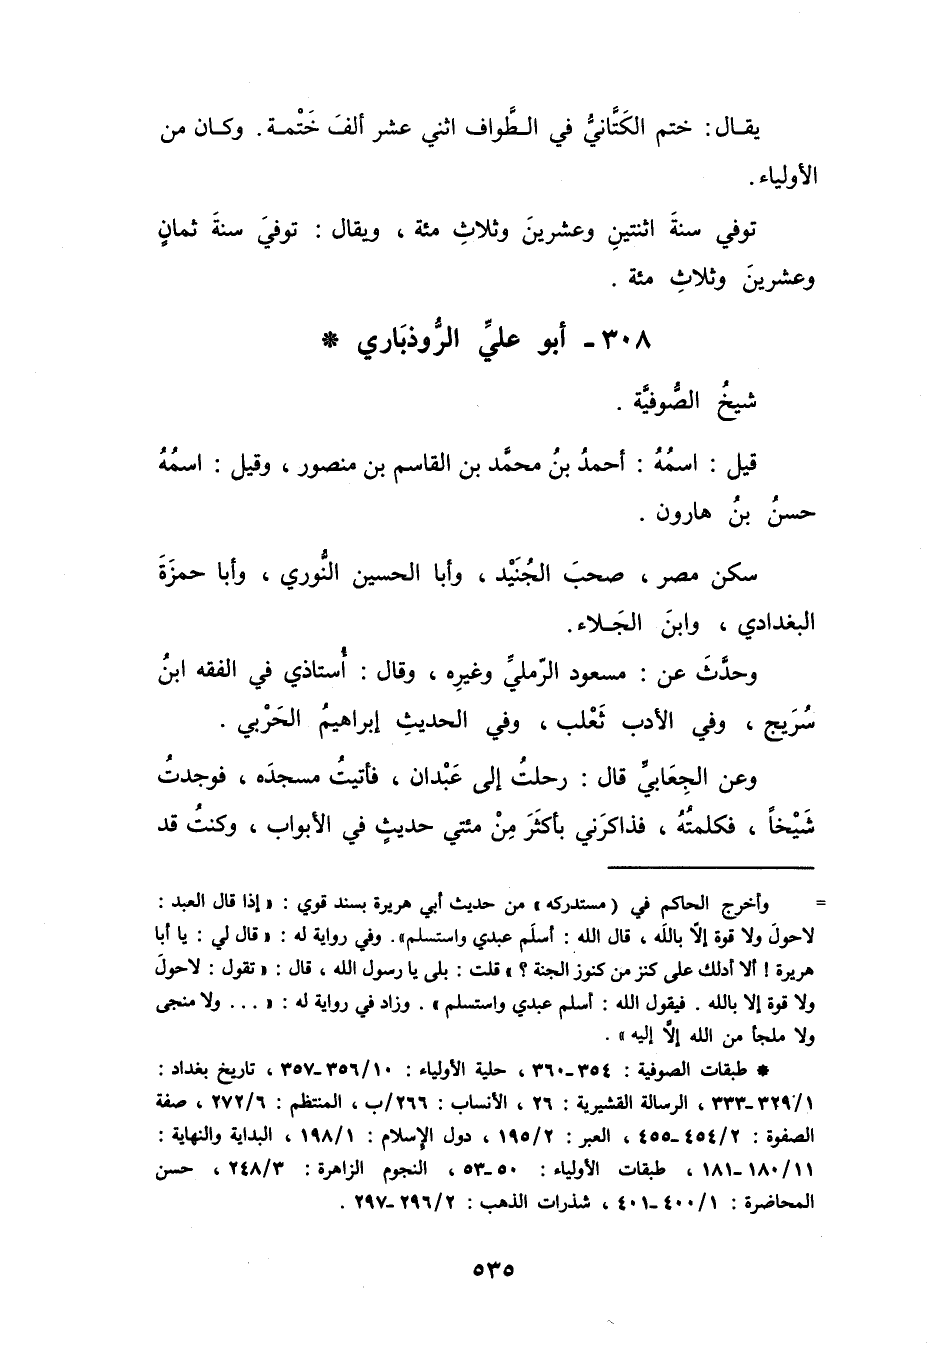 يقال : ختم الكَتَّانيُّ في الطَّواف اثني عشر ألفَ خَتْمة . وكان من
الأولياء .
توفي سنةَ اثنتينِ وعشرينَ وثلاثِ مئة ، ويقال : توفيَ سنةَ ثمانٍ
وعشرينَ وثلاثِ مئة .
٣٠٨ - أبو عليِّ الرُّوذبَاري *
شيخُ الصُّوفيَّة .
قيل : اسمُهُ : أحمدُ بنُ محمَّد بن القاسم بن منصور ، وقيل : اسمُهُ
حسنُ بنُ هارون .
سكن مصر ، صحبَ الجُنَيْد ، وأبا الحسين النُّوري ، وأبا حمزَةَ
البغدادي ، وابنَ الجَلاء .
وحدَّثَ عن : مسعود الرّمليِّ وغيرِه ، وقال : أُستاذي في الفقه ابنُ
سُرَيج ، وفي الأدب ثَعْلب ، وفي الحديثِ إبراهيمُ الحَرْبي .
وعن الجِعَابيِّ قال : رحلتُ إلى عَبْدان ، فأتيتُ مسجدَه ، فوجدتُ
شَيْخاً ، فكلمتُهُ ، فذاكرَني بأكثَرَ مِنْ مئتي حديثٍ في الأبواب ، وكنتُ قد
= وأخرج الحاكم في (مستدركه» من حديث أبي هريرة بسند قوي : « إذا قال العبد :
لاحولَ ولا قوة إلاّ بالله ، قال الله : أسلَم عبدي واستسلم». وفي رواية له : « قال لي : يا أبا
هريرة ! ألا أدلك على كنز من كنوز الجنة ؟ » قلت : بلى يا رسول الله ، قال : « تقول : لاحولَ
ولا قوة إلا بالله . فيقول الله : أسلم عبدي واستسلم » . وزاد في رواية له : « . . . ولا منجى
ولا ملجأ من الله إلاَّ إليه » .
* طبقات الصوفية : ٣٥٤-٣٦٠ ، حلية الأولياء : ٣٥٦/١٠-٣٥٧ ، تاريخ بغداد :
٣٢٩/١-٣٣٣ ، الرسالة القشيرية : ٢٦ ، الأنساب : ٢٦٦/ب ، المنتظم : ٢٧٢/٦ ، صفة
الصفوة : ٤٥٤/٢-٤٥٥ ، العبر : ١٩٥/٢ ، دول الإسلام : ١٩٨/١ ، البداية والنهاية :
١٨٠/١١-١٨١ ، طبقات الأولياء : ٥٠-٥٣ ، النجوم الزاهرة : ٢٤٨/٣ ، حسن
المحاضرة : ٤٠٠/١-٤٠١ ، شذرات الذهب : ٢٩٦/٢-٢٩٧ .
٥٣٥